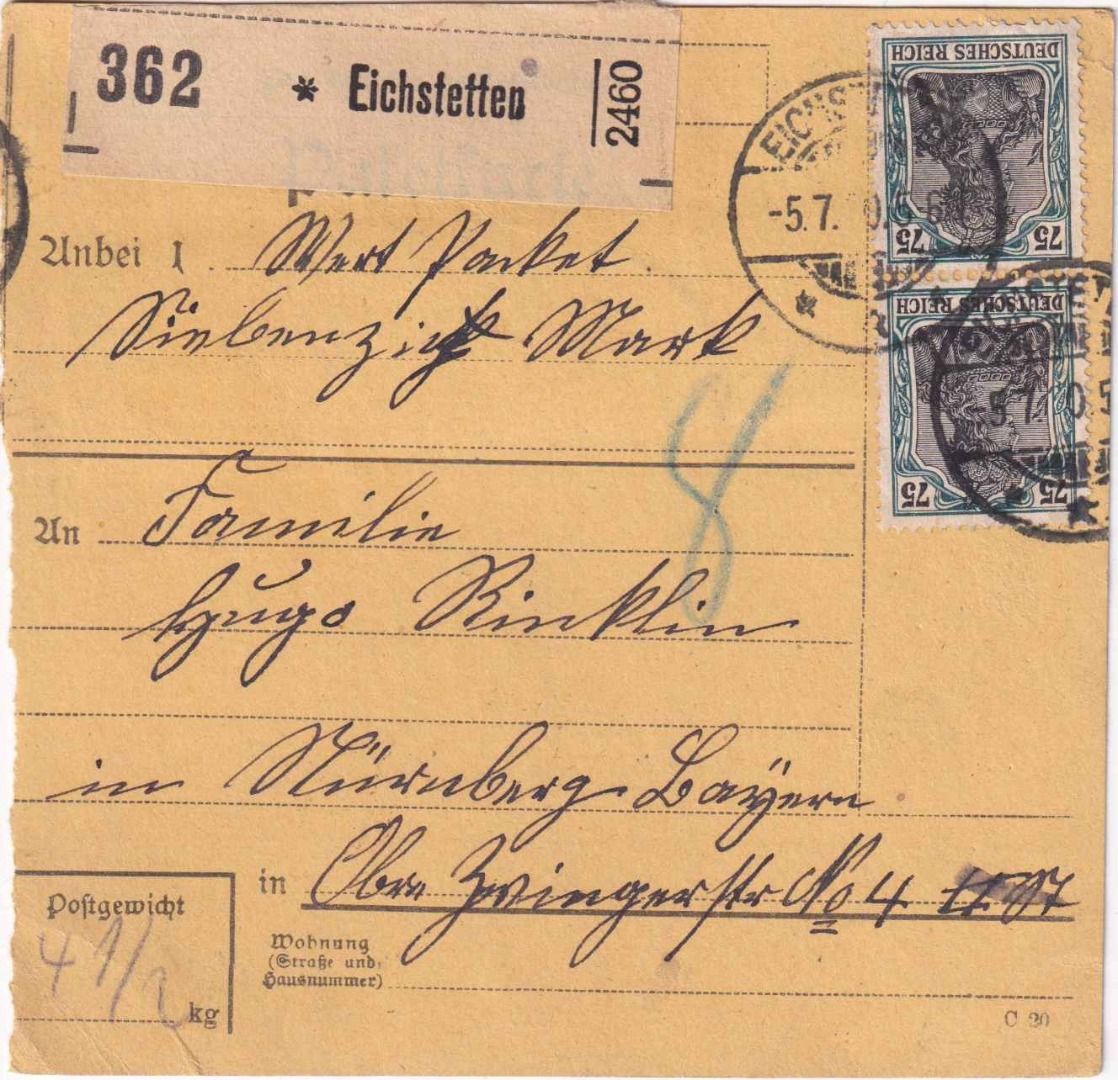 362 * Eichstetten 2460
DEUTSCHES REICH
75 75
DEUTSCHES REICH
75 75
-5.7.
Anbei 1 Wert Packet
Siebenzig Mark
8
An Familie
Hugo Rinklin
in Nürnberg Bayern
in Obre Zwingerstr No 4 II St
Wohnung
(Straße und
Hausnummer)
Postgewicht
4 1/2
kg
C 20